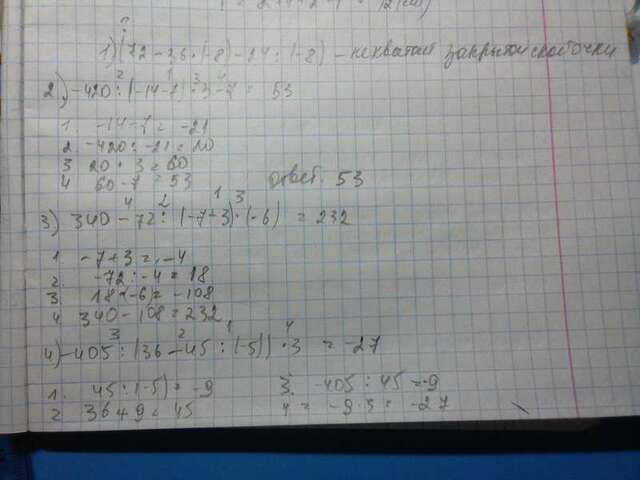 1) (72 - 36 · (-8) - 24 : (-8) - нехватает закрытой скобочки
2) -420 : (-14-7) · 3 - 7 = 53
1. -14-7 = -21
2 -420 : -21 = 20
3 20 · 3 = 60
4 60 - 7 = 53 ответ: 53
3) 340 - 72 : (-7+3) · (-6) = 232
1. -7+3 = -4
2. -72 : -4 = 18
3. 18 · (-6) = -108
4. 340 - 108 = 232
4) -405 : (36 - 45 : (-5)) · 3 = -27
1. 45 : (-5) = -9 3. -405 : 45 = -9
2. 36+9 = 45 4 = -9·3 = -27